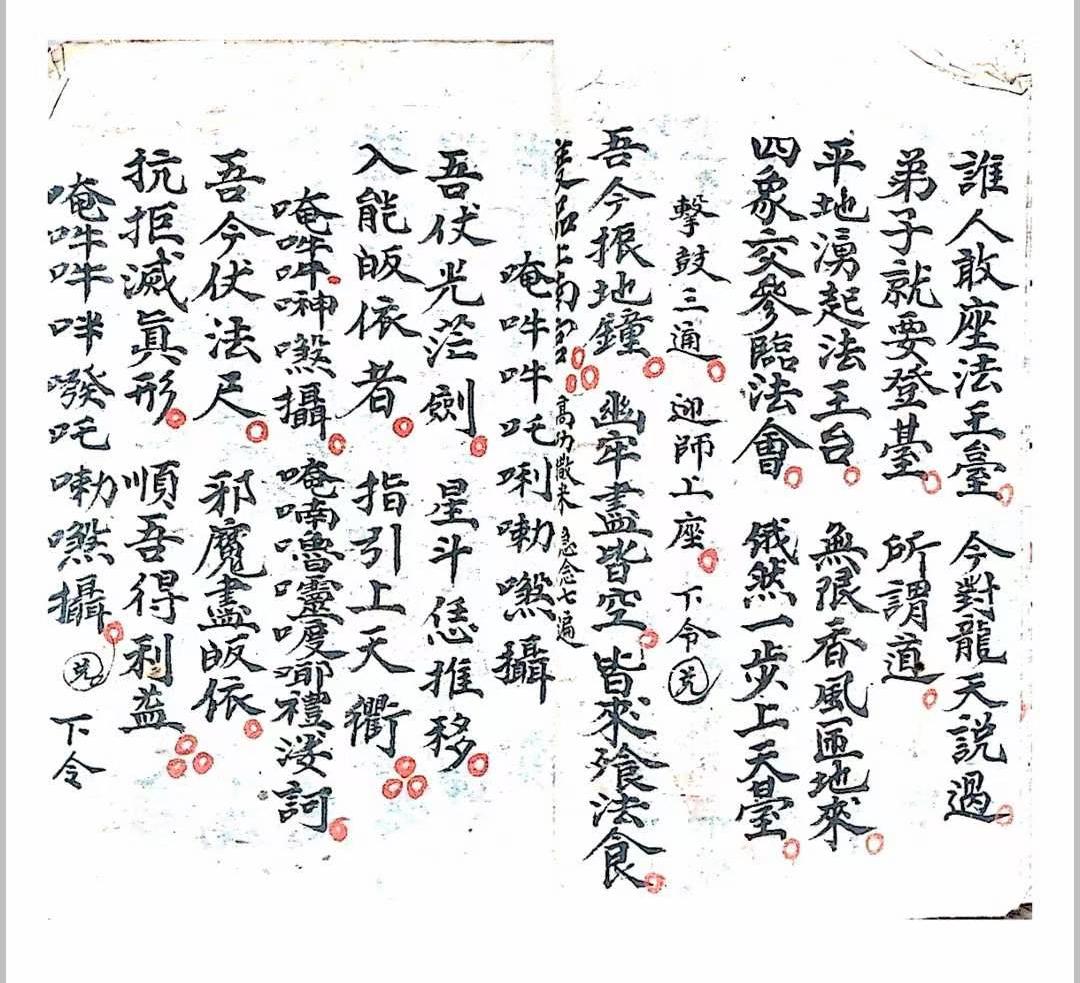 誰人敢座法王臺 今對龍天說過
弟子就要登臺 所謂道
平地湧起法王台 無限香風匝地來
四象交參臨法會 俄然一步上天臺
擊鼓三通 迎師上座 下令
吾今振地鐘 幽牢盡皆空 皆來飡法食
高功撒米 急念七遍
唵吽吽吒唎嘞噀攝
吾伏光茫劍 星斗恁推移
入能皈依者 指引上天衢
唵吽吽神噀攝 唵喃嚕靈嗄啷禮娑訶
吾今伏法尺 邪魔盡皈依
抗拒滅真形 順吾得利益
唵吽吽吽發吒嘞噀攝 下令